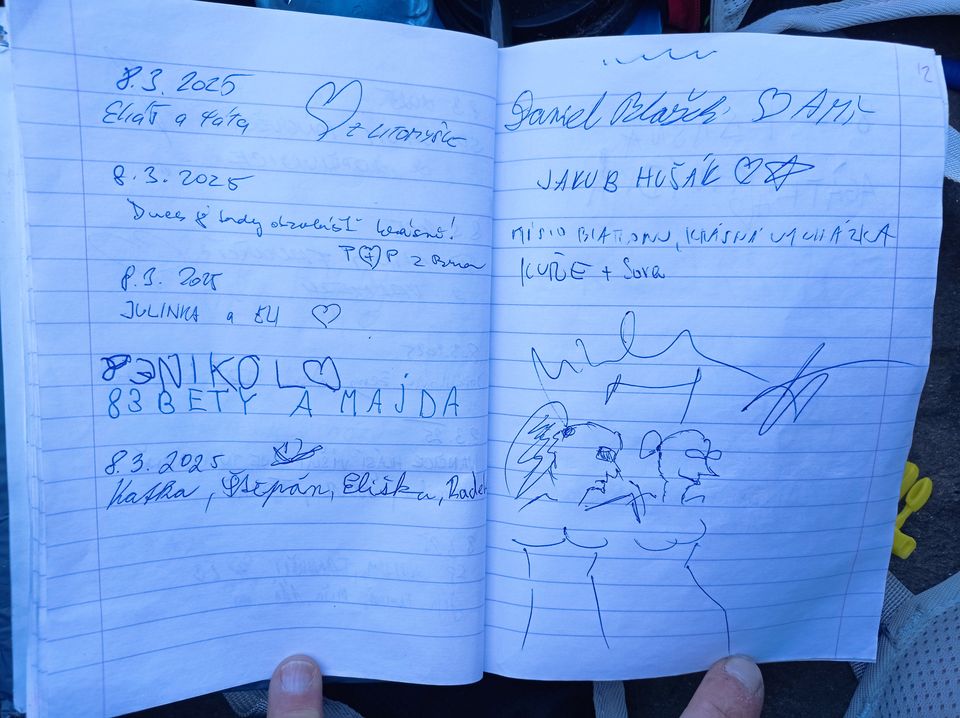 8.3. 2025
Eliáš a táta
z LITOMYŠLE
8.3. 2025
Dnes je tady obzvlášť krásně!
P P z Brna
8.3. 2025
JULINKA a ELI
NIKOL
83 BETY A MAJDA
8.3. 2025
Katka, Štěpán, Eliška, Rade
12
Daniel
JAKUB HUŠÁK
MÍSTO BLATOUNU, KRÁSNÁ VYCHÁZKA
KUŘE + Sova